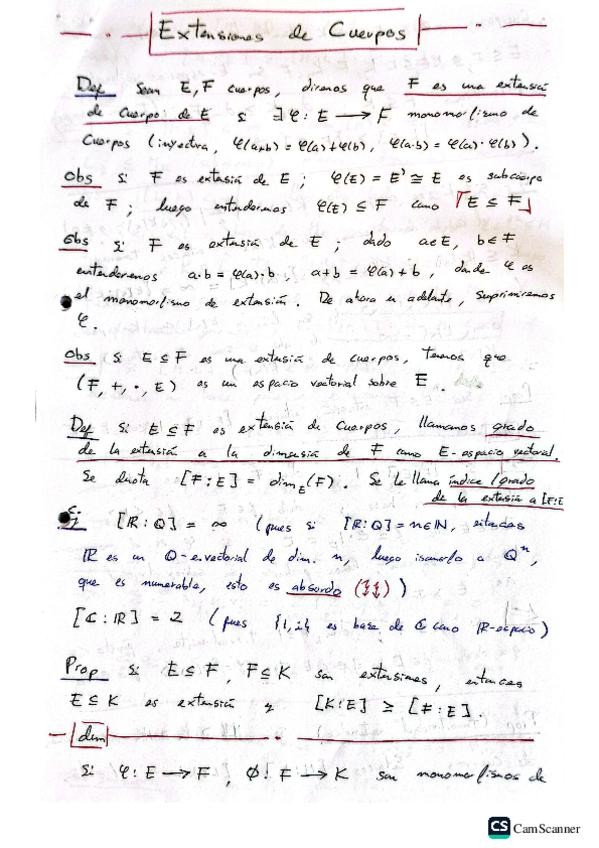 Extensiones de Cuerpos
Def Sean E, F cuerpos, diremos que F es una extensión
de cuerpo de E si ∃ φ: E → F monomorfismo de
cuerpos (inyectiva, φ(a+b) = φ(a)+φ(b), φ(a·b) = φ(a)·φ(b)).
Obs Si F es extensión de E; φ(E) = E' ≅ E es subcuerpo
de F; luego entenderemos φ(E) ≤ F como 「E ≤ F」
Obs Si F es extensión de E; dado a∈E, b∈F
entenderemos a·b = φ(a)·b, a+b = φ(a)+b, donde φ es
el monomorfismo de extensión. De ahora en adelante, suprimiremos
φ.
Obs Si E ≤ F es una extensión de cuerpos, tenemos que
(F, +, ·, E) es un espacio vectorial sobre E.
Def Si E ≤ F es extensión de cuerpos, llamamos grado
de la extensión a la dimensión de F como E-espacio vectorial.
Se denota [F:E] = dim_E(F). Se le llama índice/grado
de la extensión a [F:E
Ej: [ℝ:ℚ] = ∞ (pues si [ℝ:ℚ] = n∈ℕ, entonces
ℝ es un ℚ-e.vectorial de dim. n, luego isomorfo a ℚⁿ,
que es numerable, esto es absurdo)
[ℂ:ℝ] = 2 (pues {1,i} es base de ℂ como ℝ-espacio)
Prop Si E ≤ F, F ≤ K son extensiones, entonces
E ≤ K es extensión y [K:E] ≥ [F:E].
dem
Si φ: E → F, ϕ: F → K son monomorfismos de
CS CamScanner